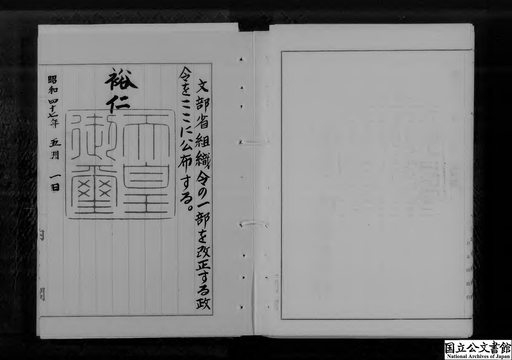 文部省組織令の一部を改正する政
令をここに公布する。
裕仁
天皇
御璽
昭和四十七年 五月 一日
国立公文書館
National Archives of Japan